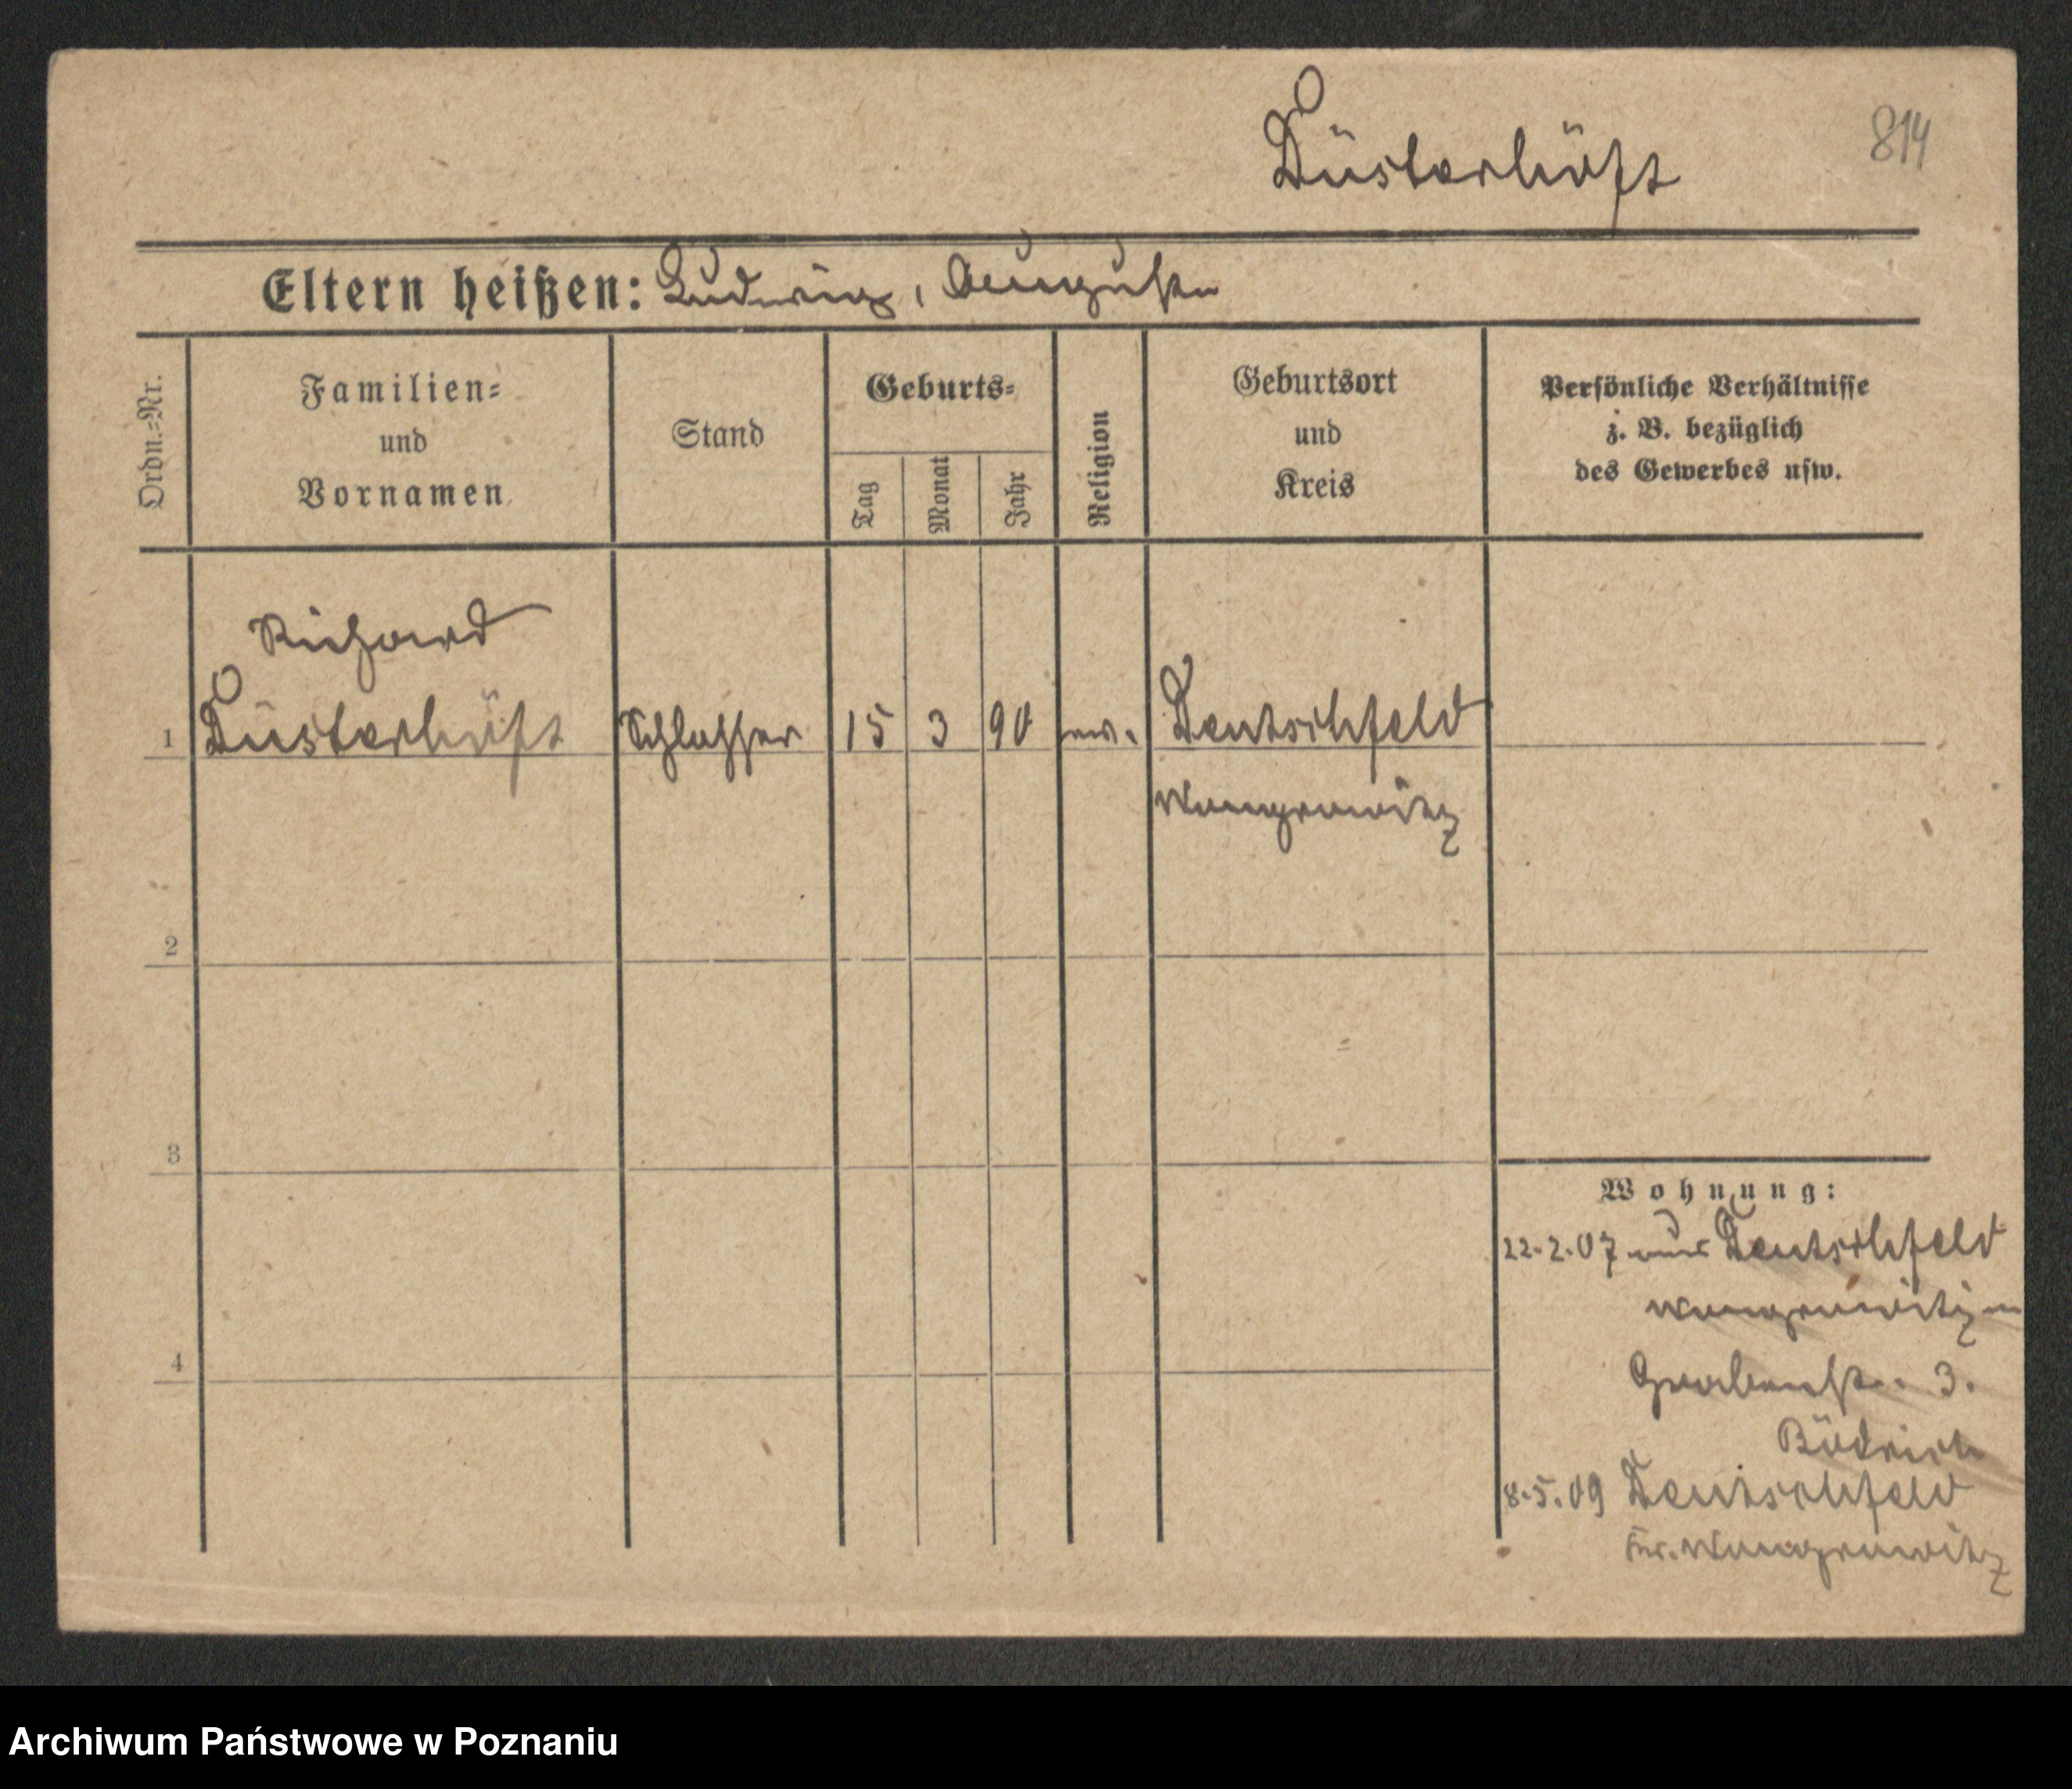 Düsterhöft
814
Eltern heißen: Ludwig, Auguste
Ordn.=Nr.
Familien=
und
Vornamen
Stand
Geburts=
Tag
Monat
Jahr
Religion
Geburtsort
und
Kreis
Persönliche Verhältnisse
z. B. bezüglich
des Gewerbes usw.
Richard
1 Düsterhöft Schlosser 15 3 90 ev. Deutschfeld
Wongrowitz
2
3
4
Wohnung:
22.2.07 aus Deutschfeld
Wongrowitz
Grabenstr. 3.
8.5.09 Deutschfeld
Kr. Wongrowitz
Archiwum Państwowe w Poznaniu